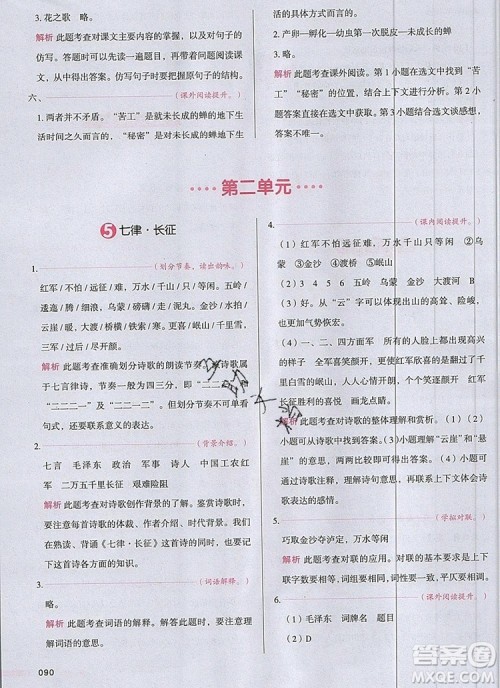 3. 花之歌 略。
解析 此题考查对课文主要内容的掌握,以及句子的仿
写。答题时可以先回顾课文内容,然后带着问题阅读课
文,即可得出答案。仿写句子的时候,要体会句子表达的
情感,仿写时要按照原句子的结构。
六、 (课外阅读提升。)
1. 两者并不矛盾。“苦工”是就未长成的蝉的地下生
活时间之久而言的,“秘密”是对未长成的蝉的地下生
2. 产卵—孵化—幼虫第一次脱皮—未长成的蝉—成虫
3. 略。
解析 此题考查课外阅读。第 1 小题在选文中找到“苦
工”“秘密”的位置,结合选文分析解答。第 2 小题结合
选文内容直接从文中获取。第 3 小题结合选文谈感想,
第二单元
5 七律·长征
1. (划分节奏,读出韵味。)
红军/不怕/远征/难,万水/千山/只/等闲。五岭/
逶迤/腾/细浪,乌蒙/磅礴/走/泥丸。金沙/水拍/
云崖/暖,大渡/桥横/铁索/寒。更喜/岷山/千里雪,
三军/过后/尽开颜。
解析 此题考查准确划分诗歌的朗读节奏。该诗歌
属于七言律诗,节奏一般为四三分,即“二二二一”
“二二一二”“二二三”。但划分节奏不可只单纯看
句式,还要联系要表达的意义。
2. (背景介绍。)
七言 毛泽东 政治 军事 诗人 中国工农红
军 二万五千里长征 艰难险阻
解析 此题考查诗歌创作背景的了解。鉴赏诗歌时,
首先要了解每首诗歌的作者、写作时间、写作背景。
在熟读、背诵《七律·长征》这首诗的同时,还要掌
握每首诗的相关知识。
3. (词语解释。)
略。
解析 此题考查对词语的解释。解答此题时,要注意
理解词语的意思。
090
4. (课内阅读提升。)
(1)红军不怕远征难,万水千山只等闲。
(2)①金沙 ②渡桥 ③岷山
(3)五岭 乌蒙 金沙 大渡河 岷山
(4)B
(5)用“云”字可以表现出山崖的高耸、险峻,
也更加气势恢宏。
(6)一、二、四方面军 所有的人脸上都出现了
喜悦的颜色 全军喜笑颜开 红军欣喜自己翻过千
里白雪的岷山 一个个笑逐颜开 表现了红军取得
长征胜利的喜悦 画龙点睛
解析 此题考查对诗歌的整体理解和赏析。(1)(2)
小题可从诗歌中直接找到答案。(4)小题理解“云崖”
和“云岩”的意义差别,即可得出答案。(5)小题注
意联系诗歌表达的意思。
5. (学拟对联。)
巧取金沙夺泸定,万水等闲
解析 此题考查对对联的应用。对联的基本要求是上下
联字数相等,词组要一致,平仄要相对,词义要相关。
6. (课外阅读提升。)
(1)毛泽东 词牌名 题目
(2)D